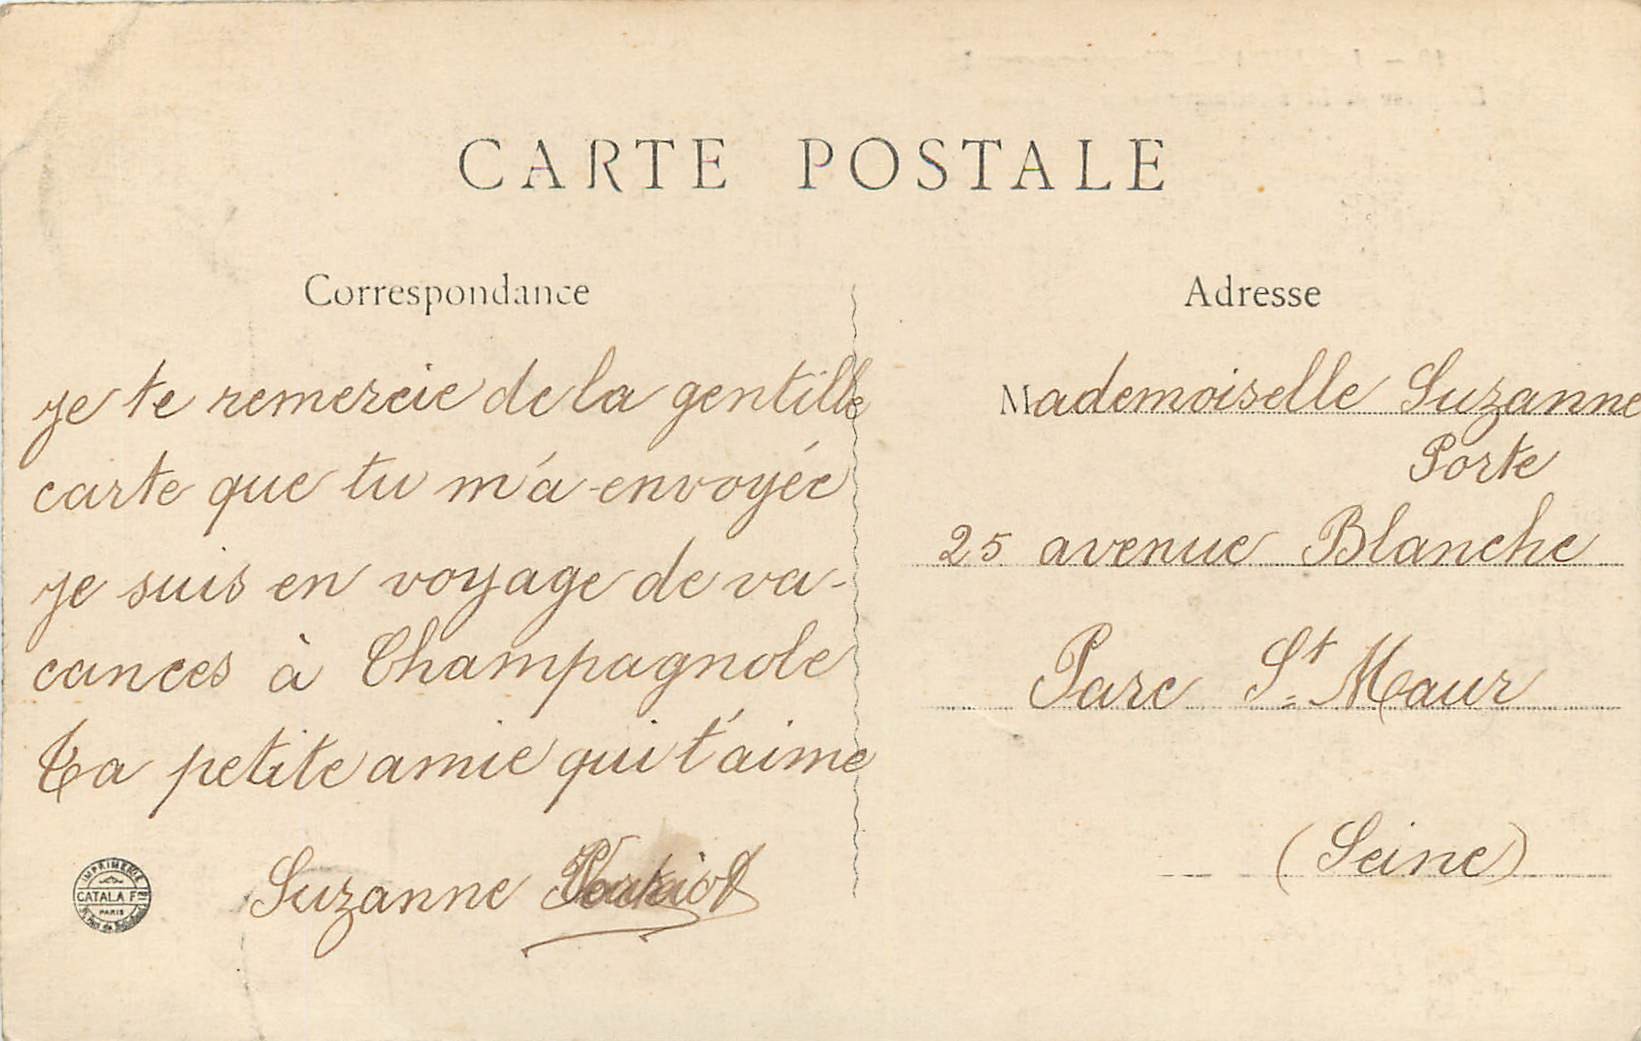 CARTE POSTALE
Correspondance
je te remercie de la gentille
carte que tu m'a envoyée
je suis en voyage de va-
cances à Champagnole
Ta petite amie qui t'aime
Suzanne
IMPRIMERIE
CATALA F
PARIS
Adresse
Mademoiselle Suzanne
Porte
25 avenue Blanche
Parc St Maur
(Seine)